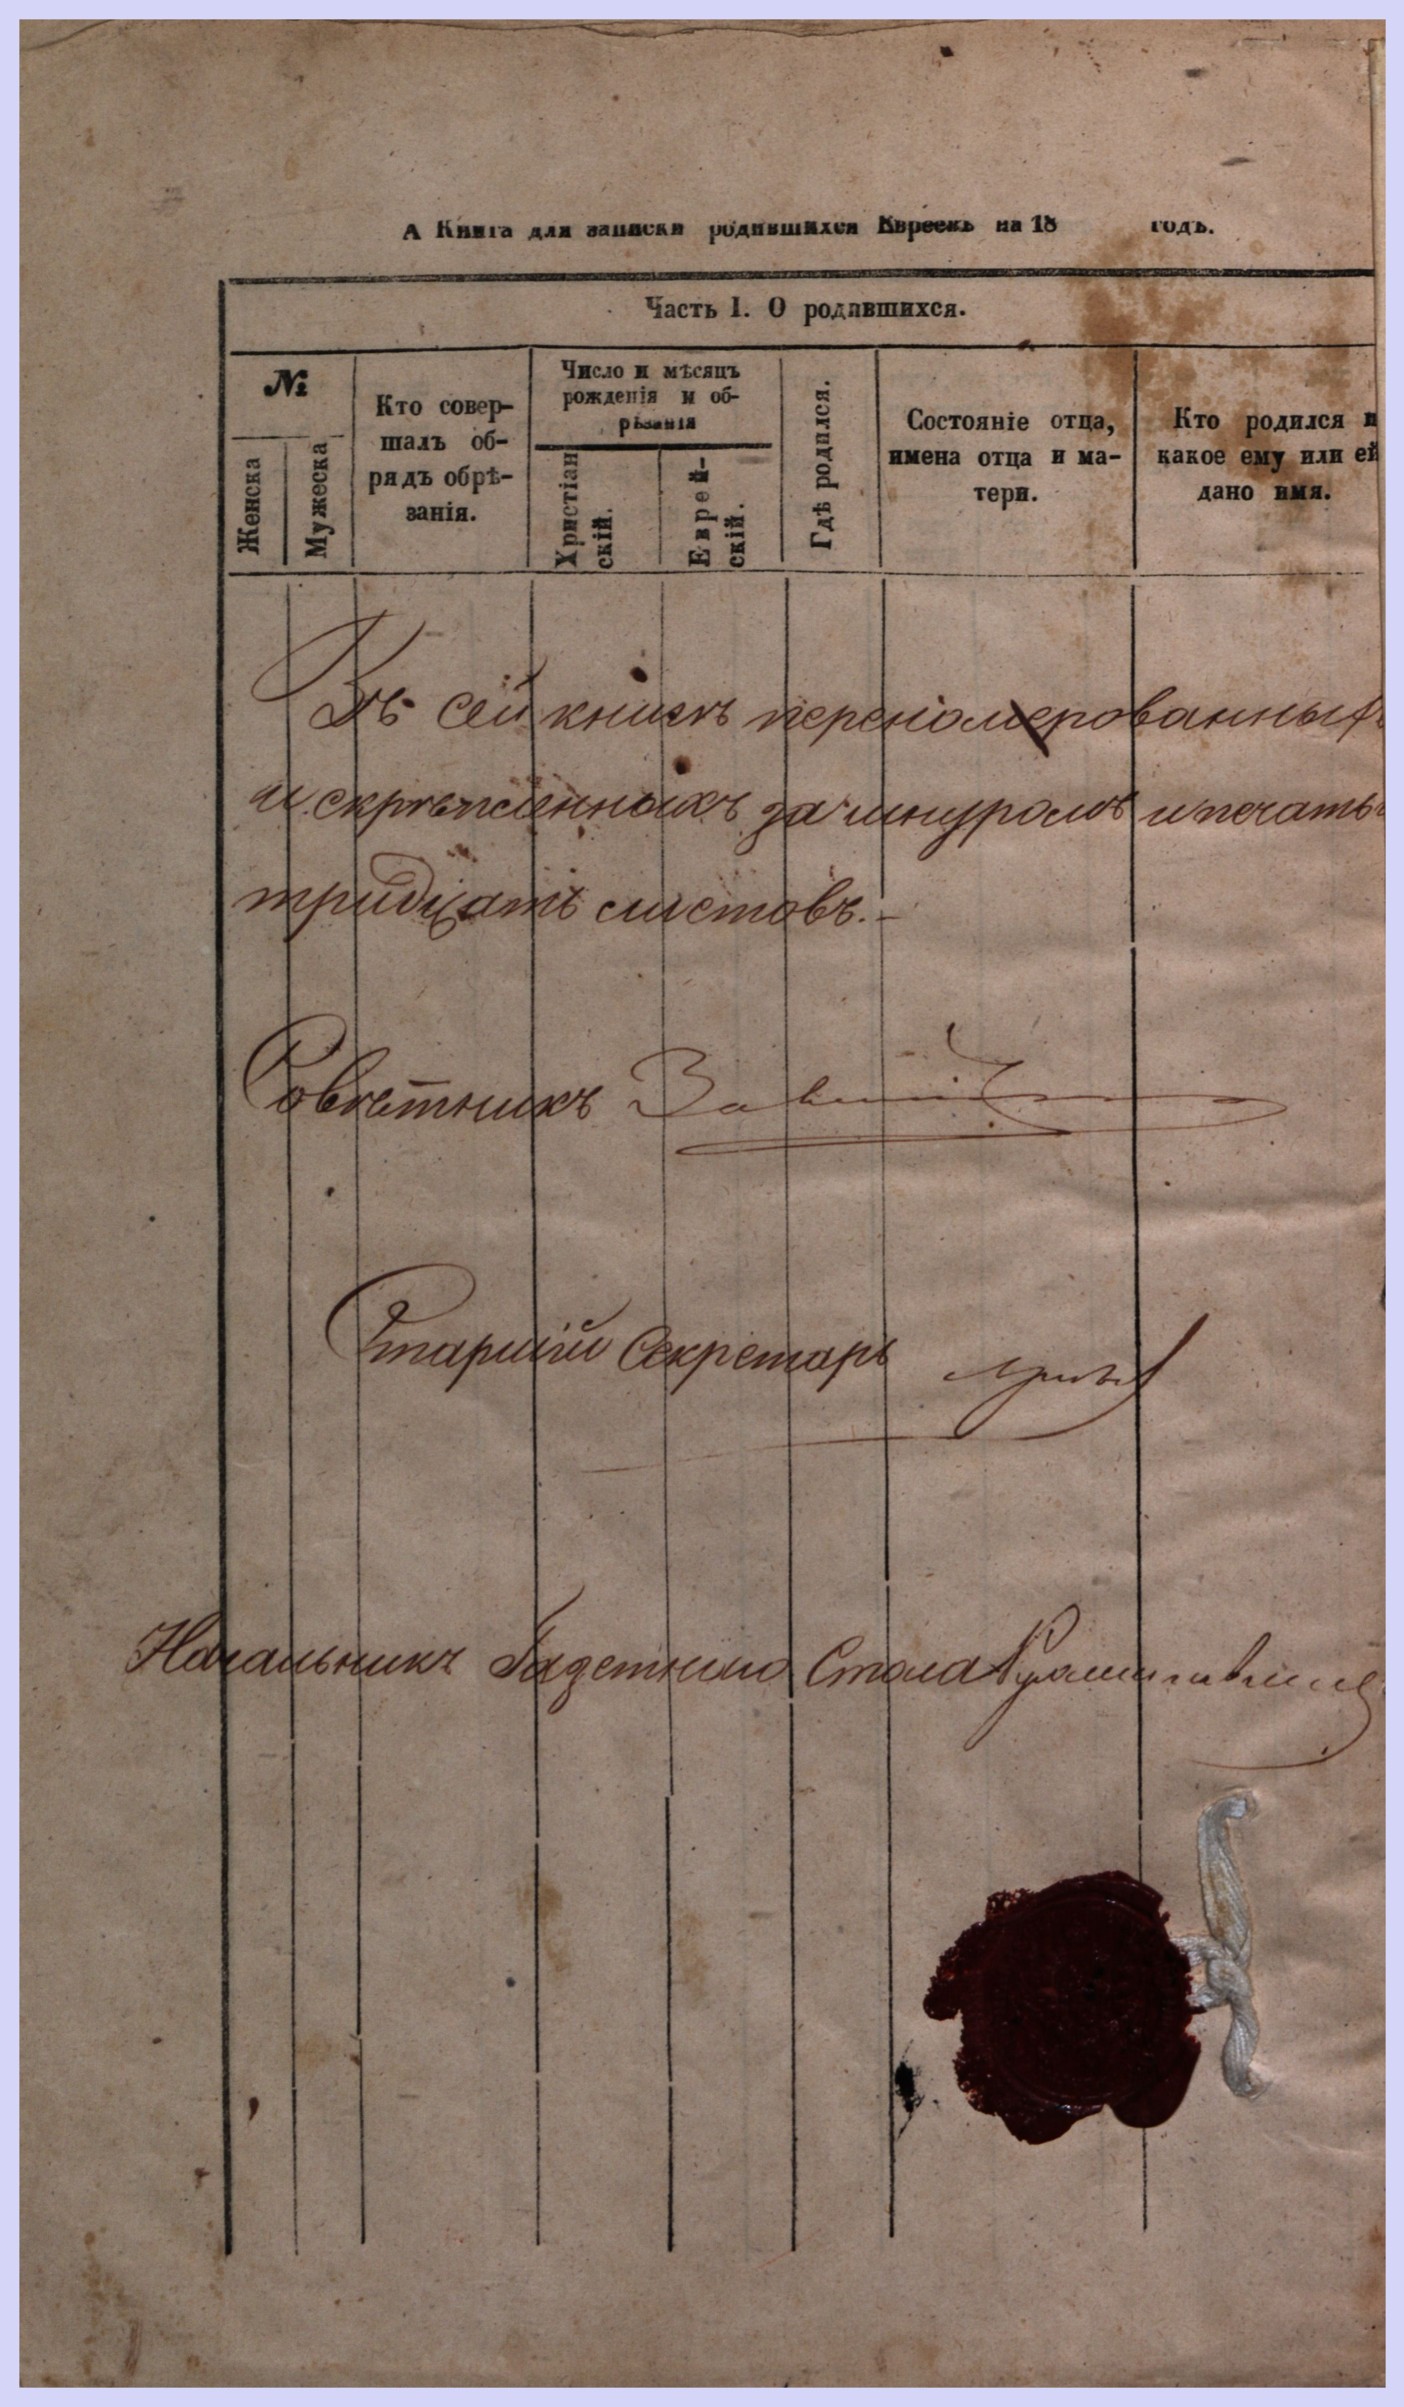 А Книга для записки родившихся Евреевъ на 18 годъ.
Часть I. О родившихся.
№
Женска
Мужеска
Кто совер-
шалъ об-
рядъ обрѣ-
занія.
Число и мѣсяцъ
рожденія и об-
рѣзанія
Христіан
скій.
Еврей-
скій.
Гдѣ родился.
Состояніе отца,
имена отца и ма-
тери.
Кто родился и
какое ему или ей
дано имя.
Въ сей книгѣ переномерованныхъ
и скрѣпленныхъ за шнуромъ и печатью
тридцать листовъ.-
Совѣтникъ
Старшій Секретарь
Начальникъ Газетнаго Стола